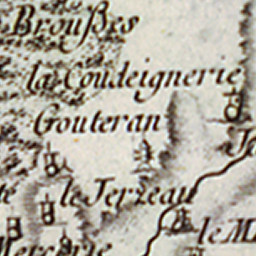 Broußes
la Coudeignerie
Gouteran
le Terzeau
le M
Mercerie